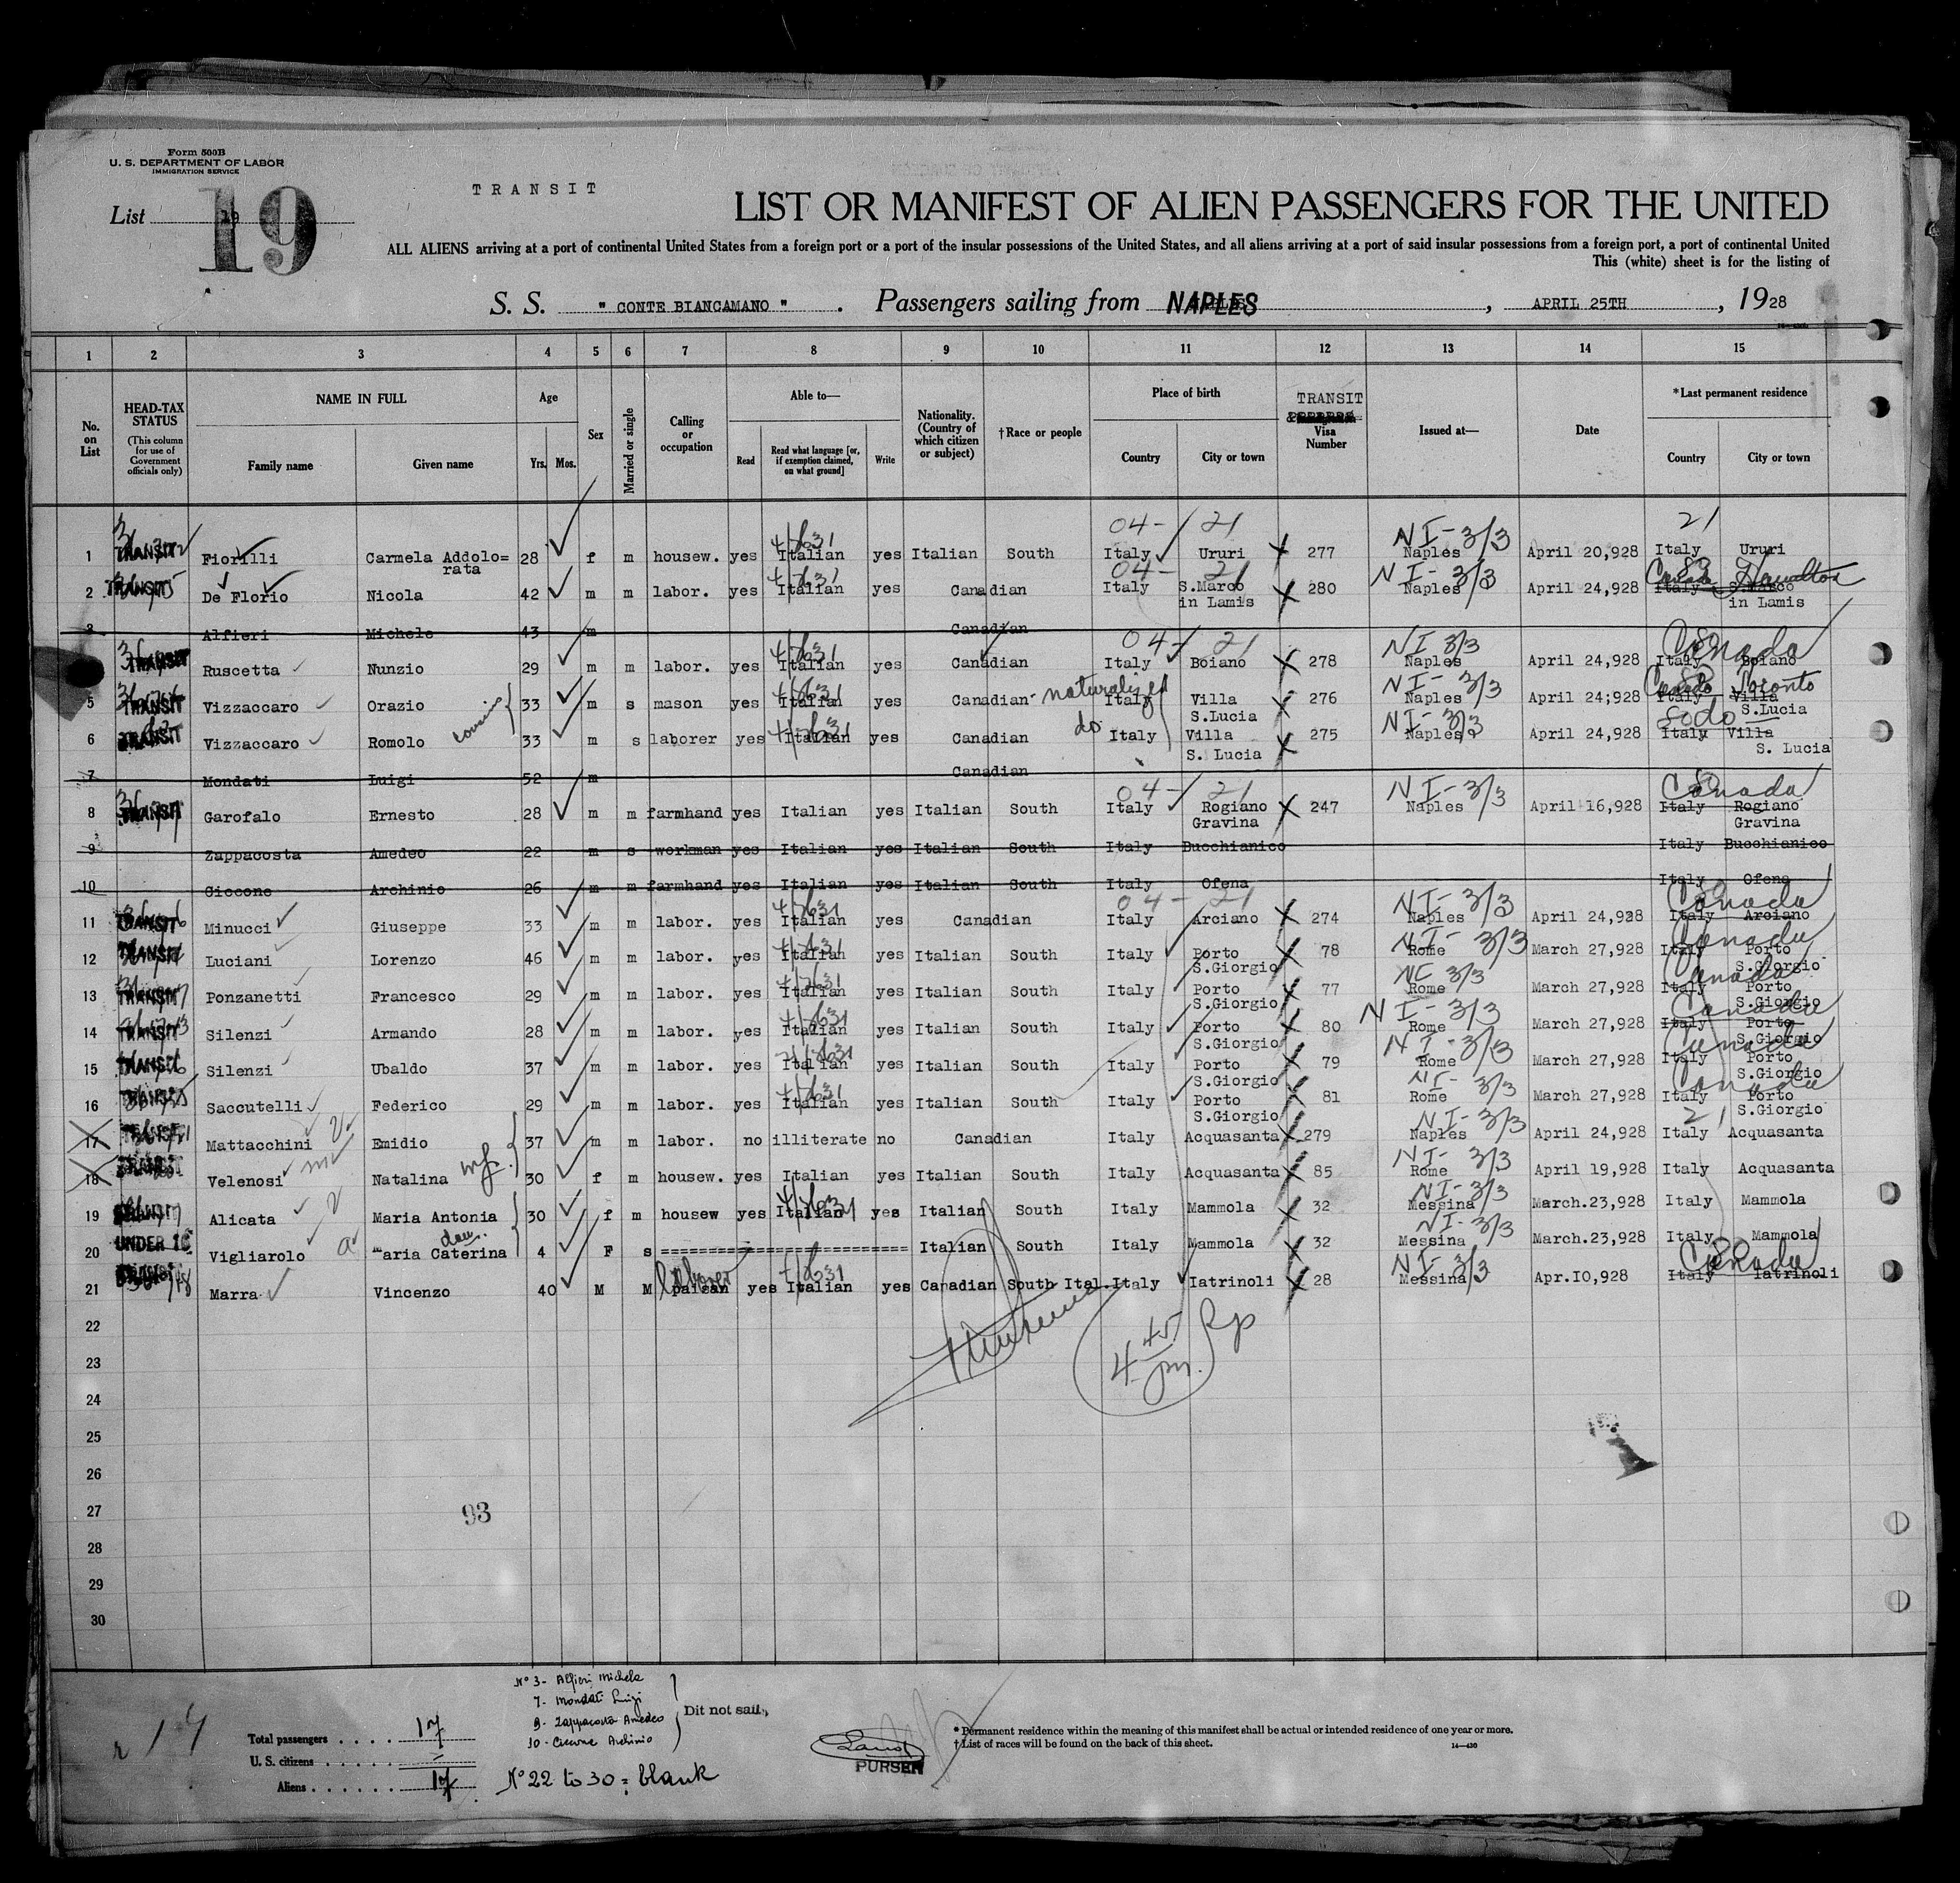 Form 500B
U. S. DEPARTMENT OF LABOR
IMMIGRATION SERVICE
TRANSIT
List 19
19
LIST OR MANIFEST OF ALIEN PASSENGERS FOR THE UNITED
ALL ALIENS arriving at a port of continental United States from a foreign port or a port of the insular possessions of the United States, and all aliens arriving at a port of said insular possessions from a foreign port, a port of continental United
This (white) sheet is for the listing of
S. S. " CONTE BIANCAMANO " . Passengers sailing from NAPLES , APRIL 25TH , 1928
1 2 3 4 5 6 7 8 9 10 11 12 13 14 15
No. on List
HEAD-TAX STATUS (This column for use of Government officials only)
NAME IN FULL Family name Given name
Age Yrs. Mos.
Sex
Married or single
Calling or occupation
Able to— Read Read what language [or, if exemption claimed, on what ground] Write
Nationality. (Country of which citizen or subject)
†Race or people
Place of birth Country City or town
TRANSIT Visa Number
Issued at—
Date
*Last permanent residence Country City or town
1 TRANSIT Fiorilli Carmela Addolo=rata 28 f m housew. yes Italian yes Italian South Italy Ururi 277 Naples NI-3/3 April 20,928 Italy Ururi
2 TRANSIT De Florio Nicola 42 m m labor. yes Italian yes Canadian Italy S.Marco in Lamis 280 Naples NI-3/3 April 24,928 Italy S.Marco in Lamis Canada Hamilton
3 Alfieri Michele 43 m Canadian
TRANSIT Ruscetta Nunzio 29 m m labor. yes Italian yes Canadian Italy Boiano 278 Naples NI 3/3 April 24,928 Italy Boiano Canada
5 TRANSIT Vizzaccaro Orazio cousins 33 m s mason yes Italian yes Canadian naturalized Italy Villa S.Lucia 276 Naples NI-3/3 April 24;928 Italy Villa S.Lucia Canada Toronto
6 TRANSIT Vizzaccaro Romolo 33 m s laborer yes Italian yes Canadian do Italy Villa S. Lucia 275 Naples NI-3/3 April 24,928 Italy Villa S. Lucia do
7 Mondati Luigi 52 m Canadian
8 TRANSIT Garofalo Ernesto 28 m m farmhand yes Italian yes Italian South Italy Rogiano Gravina 247 Naples NI-3/3 April 16,928 Italy Rogiano Gravina Canada
9 Zappacosta Amedeo 22 m s workman yes Italian yes Italian South Italy Bucchianico Italy Bucchianico
10 Ciccone Archinio 26 m m farmhand yes Italian yes Italian South Italy Ofena Italy Ofena
11 TRANSIT Minucci Giuseppe 33 m m labor. yes Italian yes Canadian Italy Arciano 274 Naples NI-3/3 April 24,928 Italy Arciano Canada
12 TRANSIT Luciani Lorenzo 46 m m labor. yes Italian yes Italian South Italy Porto S.Giorgio 78 Rome NI-3/3 March 27,928 Italy Porto S.Giorgio Canada
13 TRANSIT Ponzanetti Francesco 29 m m labor. yes Italian yes Italian South Italy Porto S.Giorgio 77 Rome NI 3/3 March 27,928 Italy Porto S.Giorgio Canada
14 TRANSIT Silenzi Armando 28 m m labor. yes Italian yes Italian South Italy Porto S.Giorgio 80 Rome NI-3/3 March 27,928 Italy Porto S.Giorgio Canada
15 TRANSIT Silenzi Ubaldo 37 m m labor. yes Italian yes Italian South Italy Porto S.Giorgio 79 Rome NI-3/3 March 27,928 Italy Porto S.Giorgio Canada
16 TRANSIT Saccutelli Federico 29 m m labor. yes Italian yes Italian South Italy Porto S.Giorgio 81 Rome NI-3/3 March 27,928 Italy Porto S.Giorgio Canada
17 TRANSIT Mattacchini Emidio 37 m m labor. no illiterate no Canadian Italy Acquasanta 279 Naples NI-3/3 April 24,928 Italy Acquasanta
18 Velenosi Natalina wf. 30 f m housew. yes Italian yes Italian South Italy Acquasanta 85 Rome NI-3/3 April 19,928 Italy Acquasanta
19 Alicata Maria Antonia 30 f m housew yes Italian yes Italian South Italy Mammola 32 Messina NI-3/3 March.23,928 Italy Mammola
20 UNDER 16 Vigliarolo Maria Caterina dau. 4 F s ========================= Italian South Italy Mammola 32 Messina NI-3/3 March.23,928 Italy Mammola
21 Marra Vincenzo 40 M M paisan laborer yes Italian yes Canadian South Ital. Italy Iatrinoli 28 Messina NI-3/3 Apr.IO,928 Italy Iatrinoli Canada
22
4 45 pm. Rp
23
24
25
26
27
93
28
29
30
Nº 3- Alfieri Michele
7- Mondati Luigi
9- Zappacosta Amedeo
10- Ciccone Archinio
Dit not sail,
Total passengers . . . . 17
U. S. citizens . . . . . . =
Aliens . . . . . . 17
Nº 22 to 30 = blank
PURSER
* Permanent residence within the meaning of this manifest shall be actual or intended residence of one year or more.
† List of races will be found on the back of this sheet.
14—430